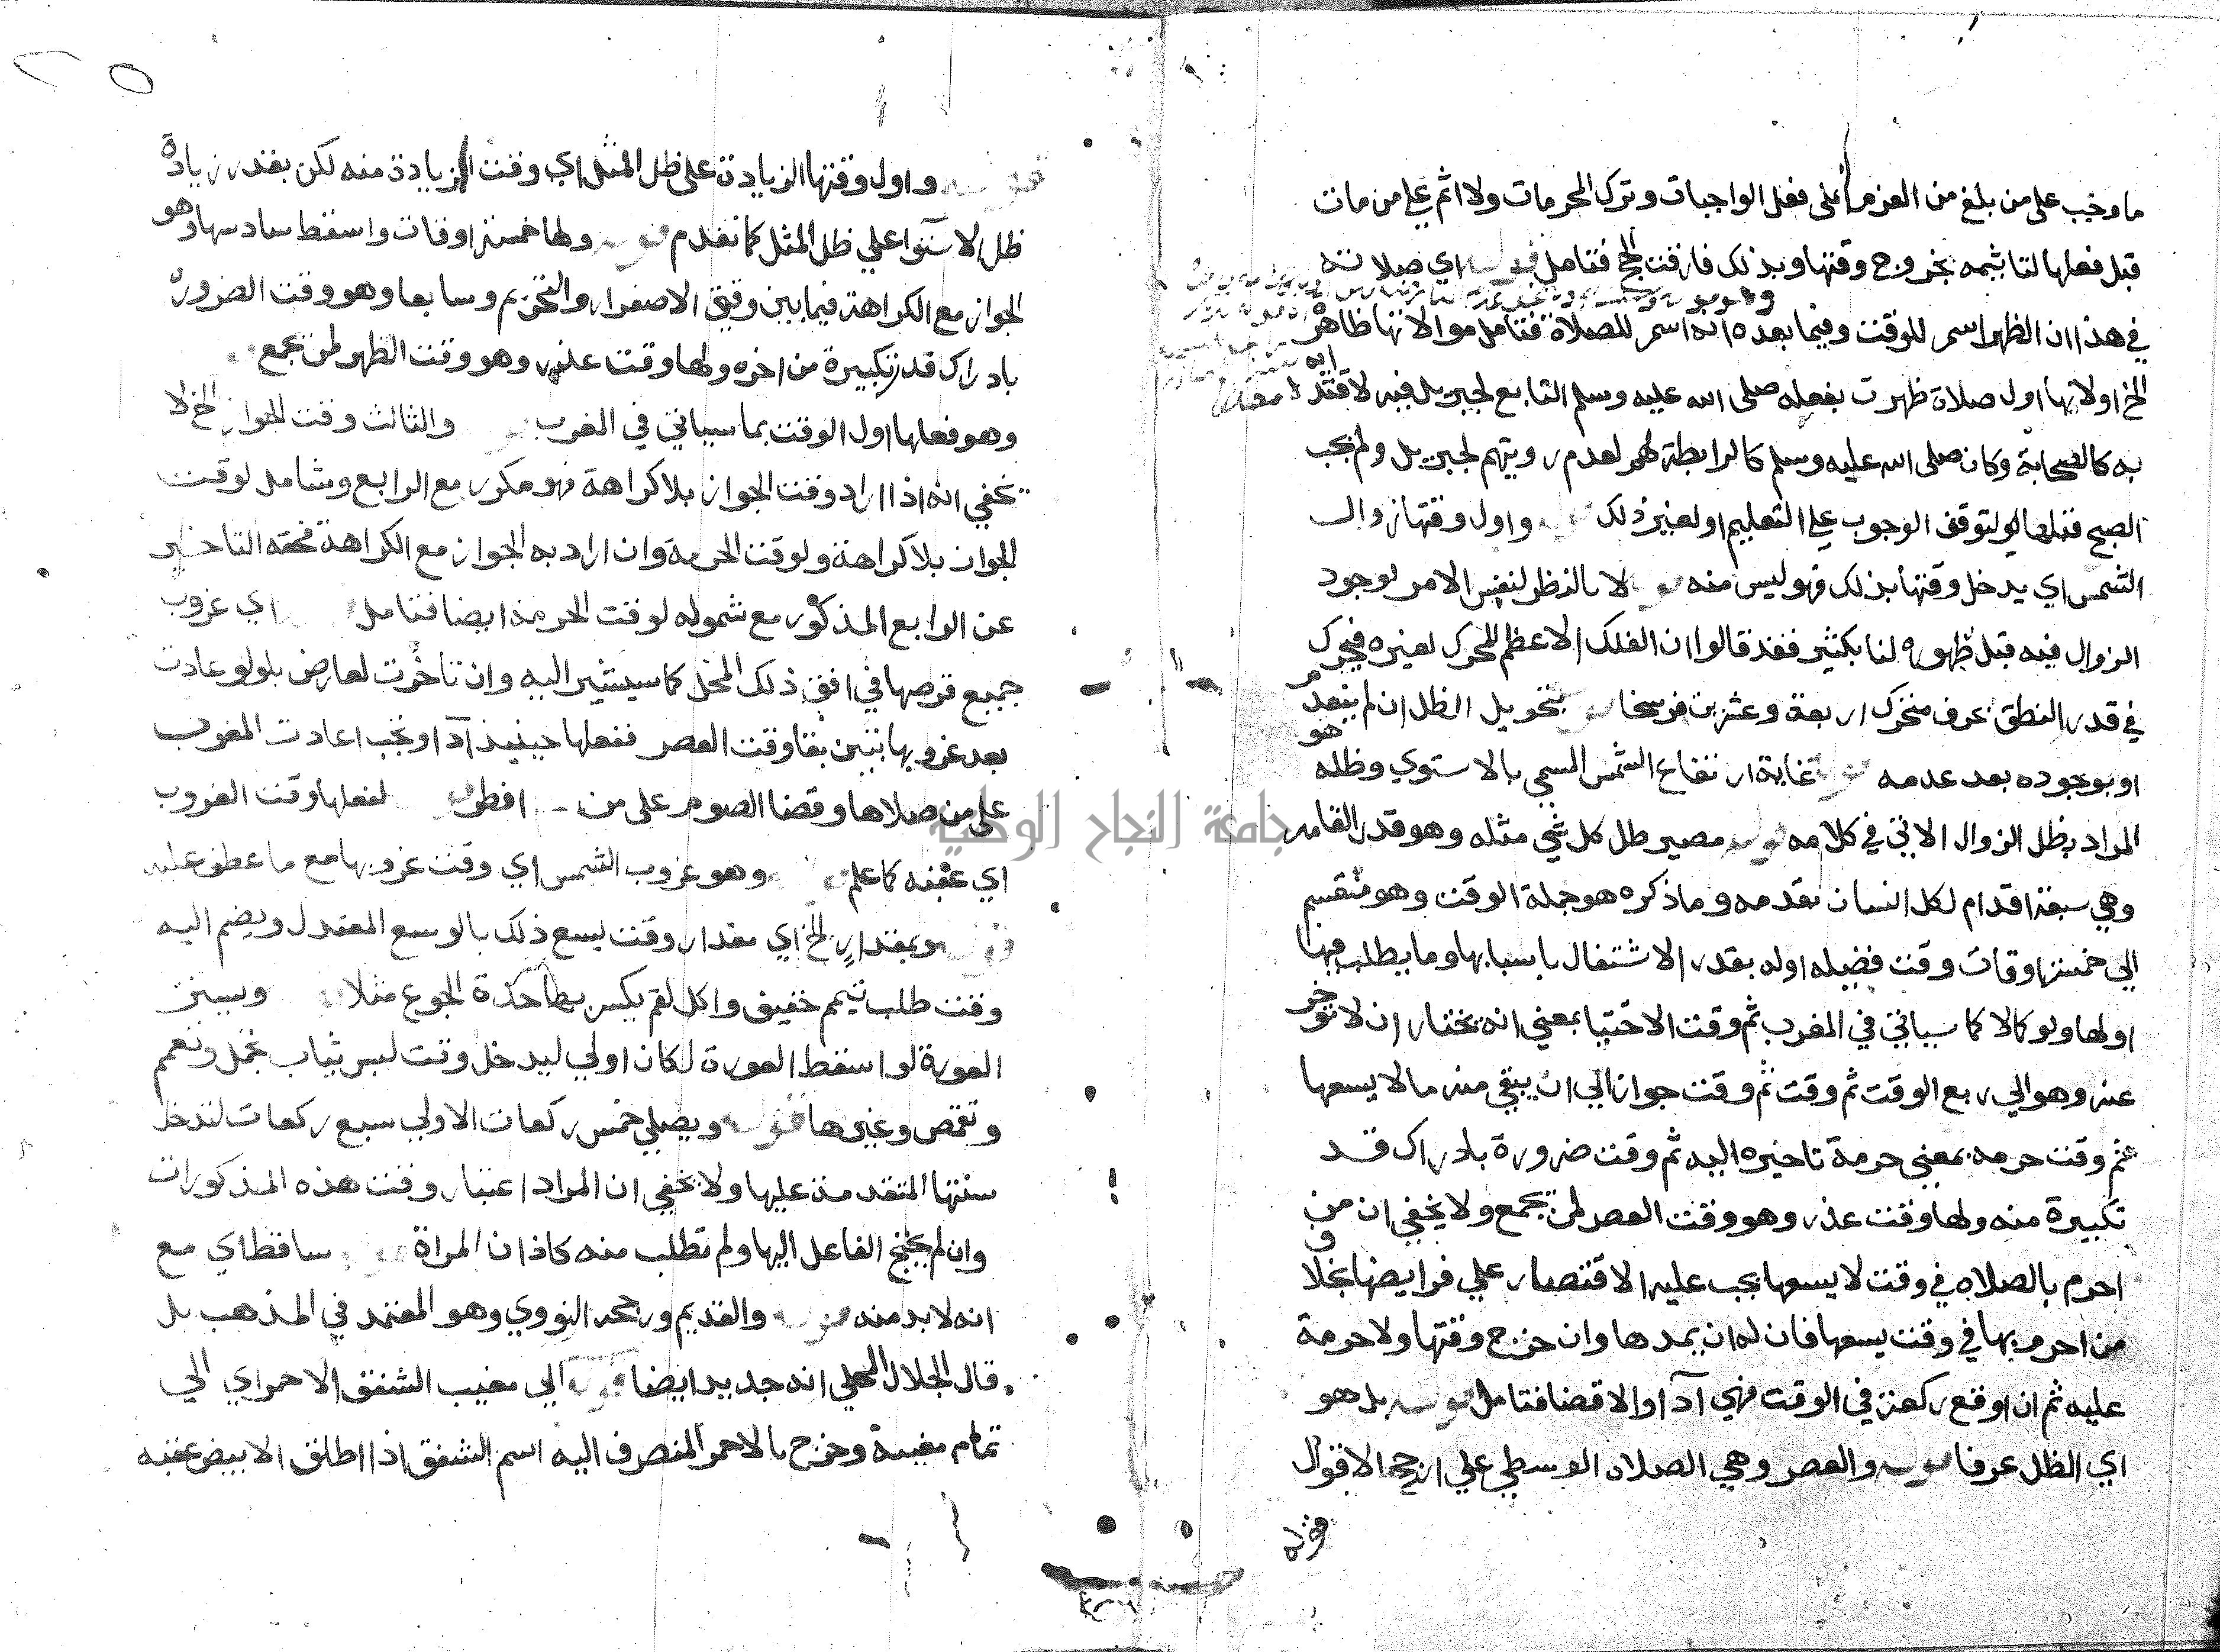 ما وجب على من بلغ من العزم على فعل الواجبات وترك المحرمات ولا اثم على من مات
قبل فعلها لتاثيمه بخروج وقتها وبذلك فارقت الحج فتامل قوله اي صلاته
في هذا ان الظهر اسم للوقت وفيما بعده انه اسم للصلاة فتامل قوله لانها ظاهرة
الخ اولانها اول صلاة ظهرت بفعله صلى الله عليه وسلم التابع لجبريل فيه لاقتدا
به كالصحابة وكان صلى الله عليه وسلم كالرابطة لهم لعدم رويتهم لجبريل ولم يجب
الصبح قبلها لتوقف الوجوب على التعليم او لغير ذلك قوله واول وقتها زوال
الشمس اي يدخل وقتها بذلك فهو ليس منه قوله لا بالنظر لنفس الامر لوجود
الزوال فيه قبل ظهوره لنا بكثير فقد قالوا ان الفلك الاعظم المحرك لغيره فيتحرك
في قدر النطق بحرف متحرك اربعة وعشرين فرسخا قوله بتحويل الظل ان لم ينعدم
او بوجوده بعد عدمه قوله غاية ارتفاع الشمس المسمى بالاستوي وظله هو
المراد بظل الزوال الاتي في كلامه قوله مصير ظل كل شي مثله وهو قدر القامه
وهي سبعة اقدام لكل انسان بقدمه وما ذكره هو جملة الوقت وهو منقسم
الى خمسة اوقات وقت فضيله اوله بقدر الاشتغال باسبابها وما يطلب فيها
اولها ولو كمالا كما سياتي في المغرب ثم وقت الاختيا بمعنى انه يختار ان لا توخر
عنه وهو الى ربع الوقت ثم وقت ثم وقت جواز الى ان يبقى منه ما لا يسعها
ثم وقت حرمه بمعنى حرمة تاخيره اليه ثم وقت ضرورة بادراك قدر
تكبيرة منه ولها وقت عذر وهو وقت العصر لمن يجمع ولا يخفى ان من
احرم بالصلاه في وقت لا يسعها يجب عليه الاقتصار على فرايضها بخلاف
من احرم بها في وقت يسعها فان له ان يمدها وان خرج وقتها ولا حرمة
عليه ثم ان اوقع ركعة في الوقت فهي ادا والا قضا فتامل قوله بل هو
اي الظل عرفا قوله والعصر وهي الصلاة الوسطى على ارجح الاقوال
قوله
قوله واول وقتها الزيادة على ظل المثل اي وقت الزيادة منه لكن بقدر زيادة
ظل الاستوا على ظل المثل كما تقدم قوله ولها خمسة اوقات واسقط سادسها وهو
الجواز مع الكراهة فيما بين وقتي الاصفرار والتحريم وسابعا وهو وقت الضرورة
بادراك قدر تكبيرة من اخره ولها وقت عذر وهو وقت الظهر لمن يجمع
وهو فعلها اول الوقت بما سياتي في المغرب قوله والثالث وقت الجواز الخ لا
يخفى انه اذا اراد وقت الجواز بلا كراهة فهو مكرر مع الرابع وشامل لوقت
الجواز بلا كراهة ولوقت الحرمة وان اراد به الجواز مع الكراهة فحقه التاخير
عن الرابع المذكور مع شموله لوقت الحرمة ايضا فتامل اي غروب
جميع قرصها في افق ذلك المحل كما سيشير اليه وان تاخرت لعارض بل ولو عادت
بعد غروبها تبين بقا وقت العصر ففعلها حينيذ ادا وتجب اعادت المغرب
على من صلاها وقضا الصوم على من افطر قوله لفعلها وقت الغروب
اي عقبه كما علم قوله وهو غروب الشمس اي وقت غروبها مع ما عطف عليه
قوله وبمقدار الخ اي مقدار وقت يسع ذلك بالوسع المعتدل ويضم اليه
وقت طلب تيمم خفيف واكل لقم يكسر بها حدة الجوع مثلا قوله ويستر
العورة لو اسقط العورة لكان اولى ليدخل وقت لبس ثياب تجمل وتعمم
وتقمص وغيرها قوله ويصلي خمس ركعات الاولى سبع ركعات لتدخل
سنتها المتقدمة عليها ولا يخفى ان المراد اعتبار وقت هذه المذكورات
وان لم يحتج الفاعل اليها ولم تطلب منه كاذان المراة قوله ساقط اي مع
انه لا بد منه قوله والقديم ورجحه النووي وهو المعتمد في المذهب بل
قال الجلال المحلي انه جديد ايضا قوله الى مغيب الشفق الاحمر اي الى
تمام مغيبه وخرج بالاحمر المنصرف اليه اسم الشفق اذا اطلق الابيض عقبه
جامعة النجاح الوطنية